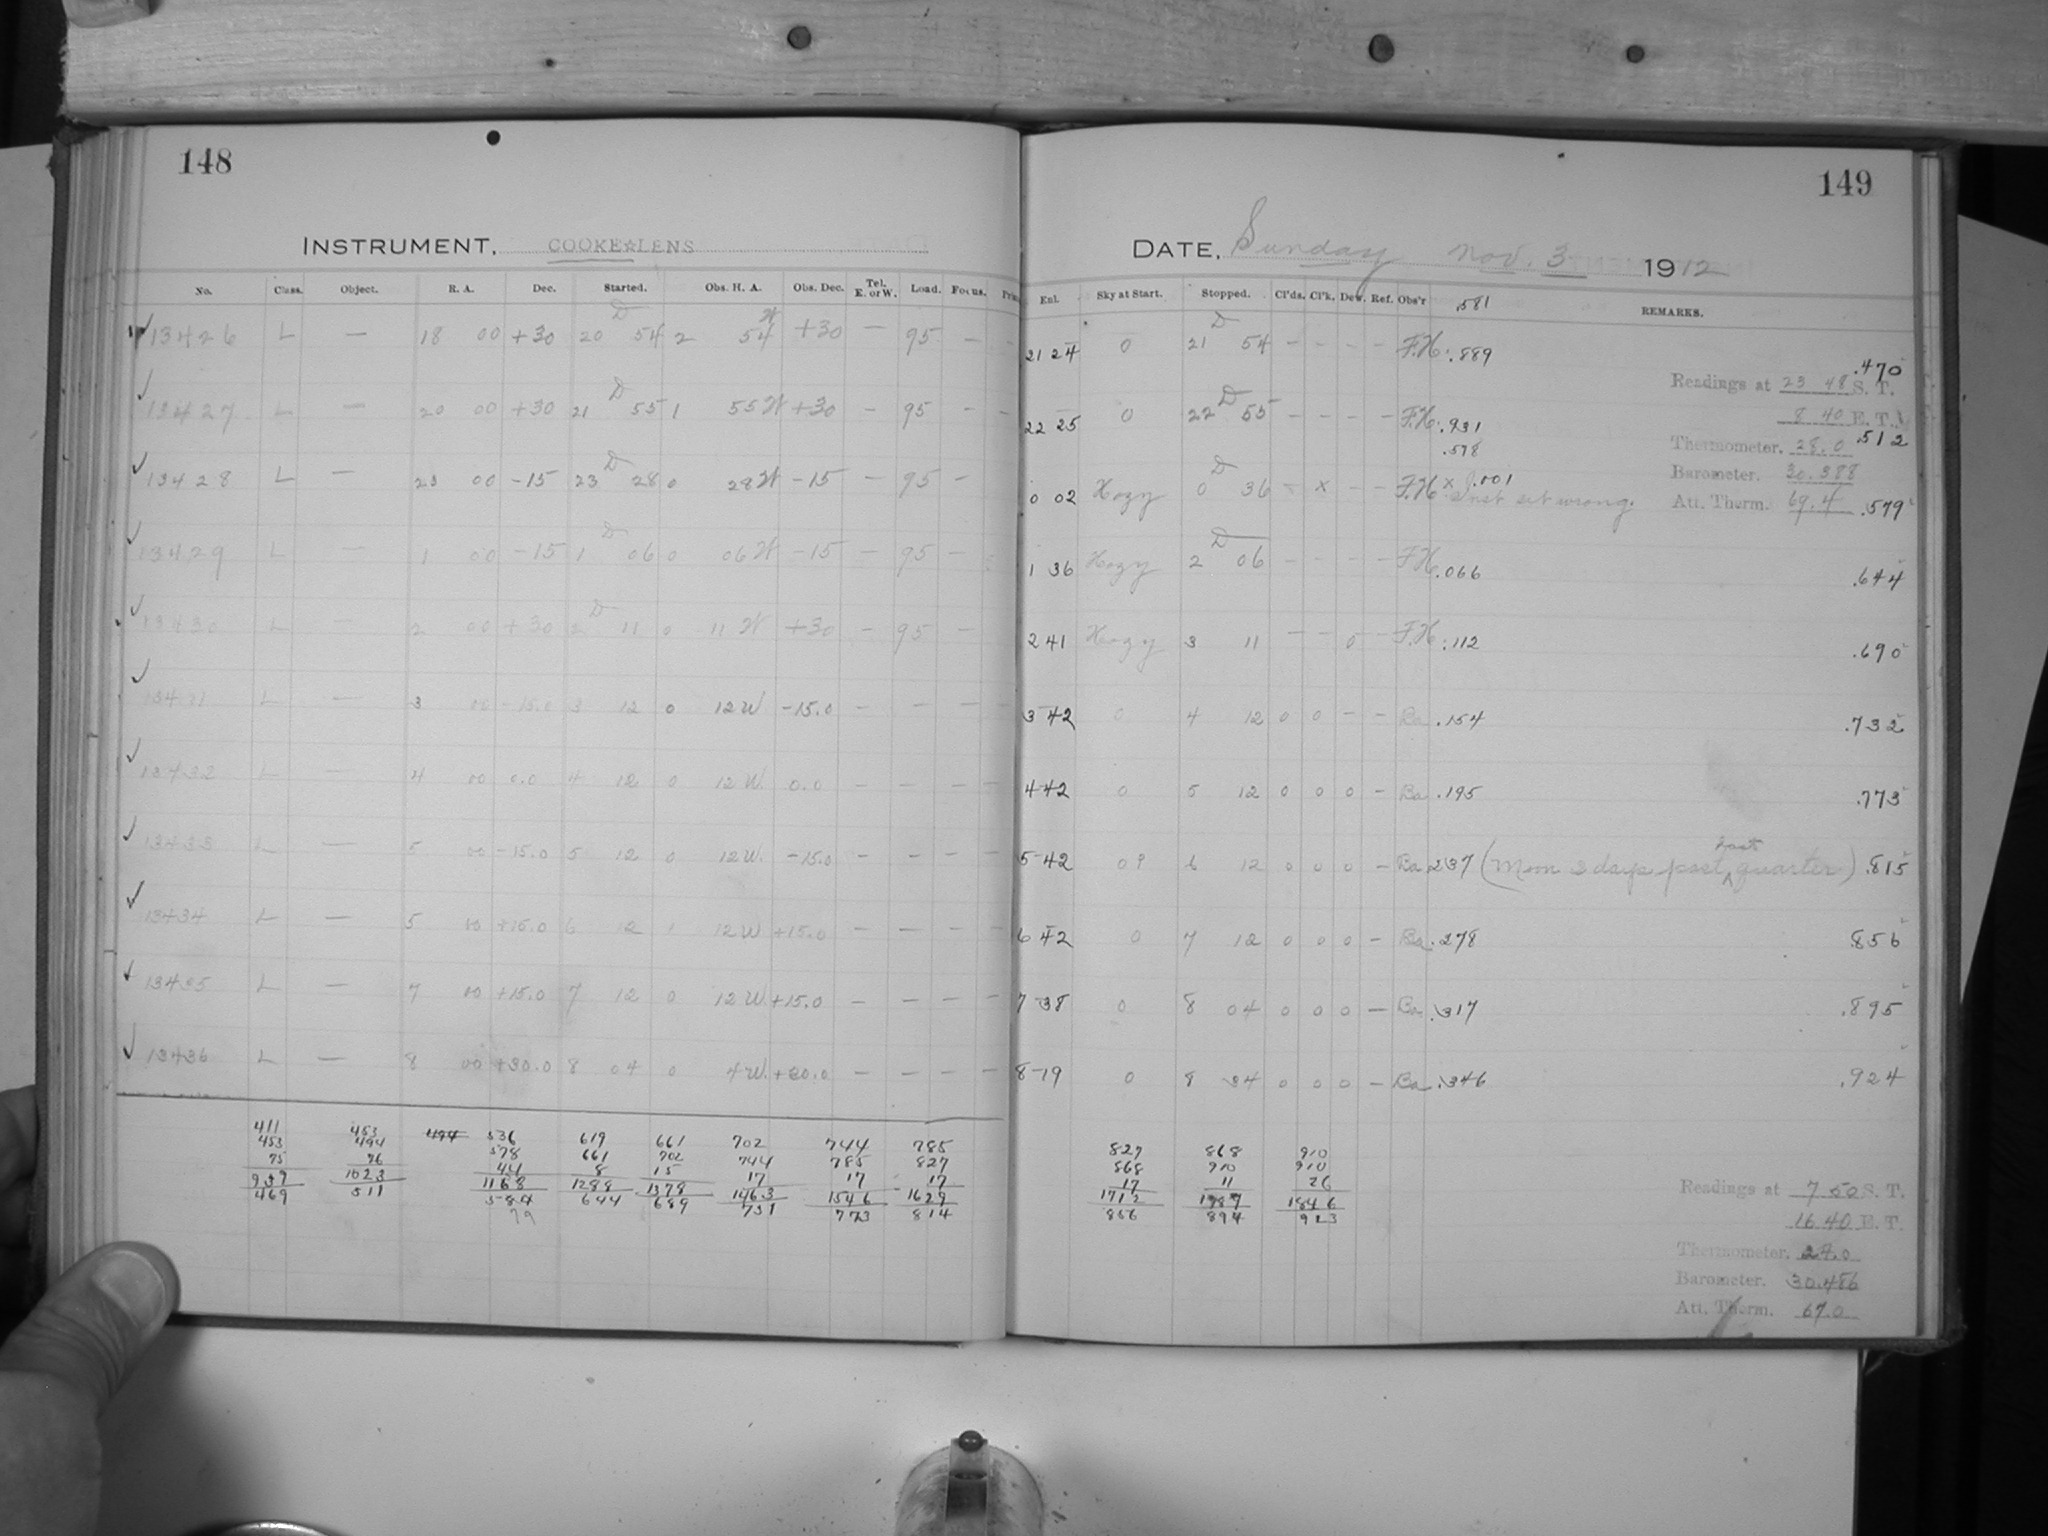 148
INSTRUMENT. COOKE☆LENS
No. Class. Object. R. A. Dec. Started. Obs. H. A. Obs. Dec. Tel. E. or W. Load. Focus.
13426 L — 18 00 +30 20 D 54 2 54 W +30 — 95 — —
13427 L — 20 00 +30 21 D 55 1 55 W +30 — 95 — —
13428 L — 23 00 -15 23 D 28 0 28 W -15 — 95 —
13429 L — 1 00 -15 1 D 06 0 06 W -15 — 95 —
13430 L — 2 00 +30 2 D 11 0 11 W +30 — 95 —
13431 L — 3 00 -15.0 3 12 0 12 W -15.0 — — — —
13432 L — 4 00 0.0 4 12 0 12 W. 0.0 — — — —
13433 L — 5 00 -15.0 5 12 0 12 W. -15.0 — — — —
13434 L — 5 00 +15.0 6 12 1 12 W +15.0 — — — —
13435 L — 7 00 +15.0 7 12 0 12 W. +15.0 — — — —
13436 L — 8 00 +30.0 8 04 0 4 W. +30.0 — — — —
411 453 494 536 619 661 702 744 785
453 494 578 661 702 744 785 827
75 76 44 8 15 17 17 17
939 1023 1168 1288 1378 1463 1546 1629
469 511 584 644 689 731 773 814
79
149
DATE, Sunday Nov. 3 1912
Enl. Sky at Start. Stopped. Cl'ds. Cl'k. Dew. Ref. Obs'r .581 REMARKS.
21 24 0 21 D 54 — — — — F.H. .889 .470
Readings at 23 48 S. T.
8 40 E. T.
22 25 0 22 D 55 — — — — F.H. .931 .512
.578
Thermometer. 28.0
Barometer. 30.388
Att. Therm. 69.4
0 02 Hazy 0 D 36 - x — — F.H. x .001 Inst set wrong. .579
1 36 Hazy 2 D 06 — — — — F.H. .066 .644
2 41 Hazy 3 11 — — 0 — F.H. .112 .690
3 42 0 4 12 0 0 — — Ba .154 .732
4 42 0 5 12 0 0 0 — Ba .195 .773
5 42 0? 6 12 0 0 0 — Ba .237 (Moon 2 days past last quarter) .815
6 42 0 7 12 0 0 0 — Ba .278 .856
7 38 0 8 04 0 0 0 — Ba .317 .895
8 19 0 8 34 0 0 0 — Ba .346 .924
827 868 910
868 910 910
17 11 26
1712 1789 1846
856 894 923
Readings at 7 50 S. T.
16 40 E. T.
Thermometer. 27.0
Barometer. 30.486
Att. Therm. 67.0